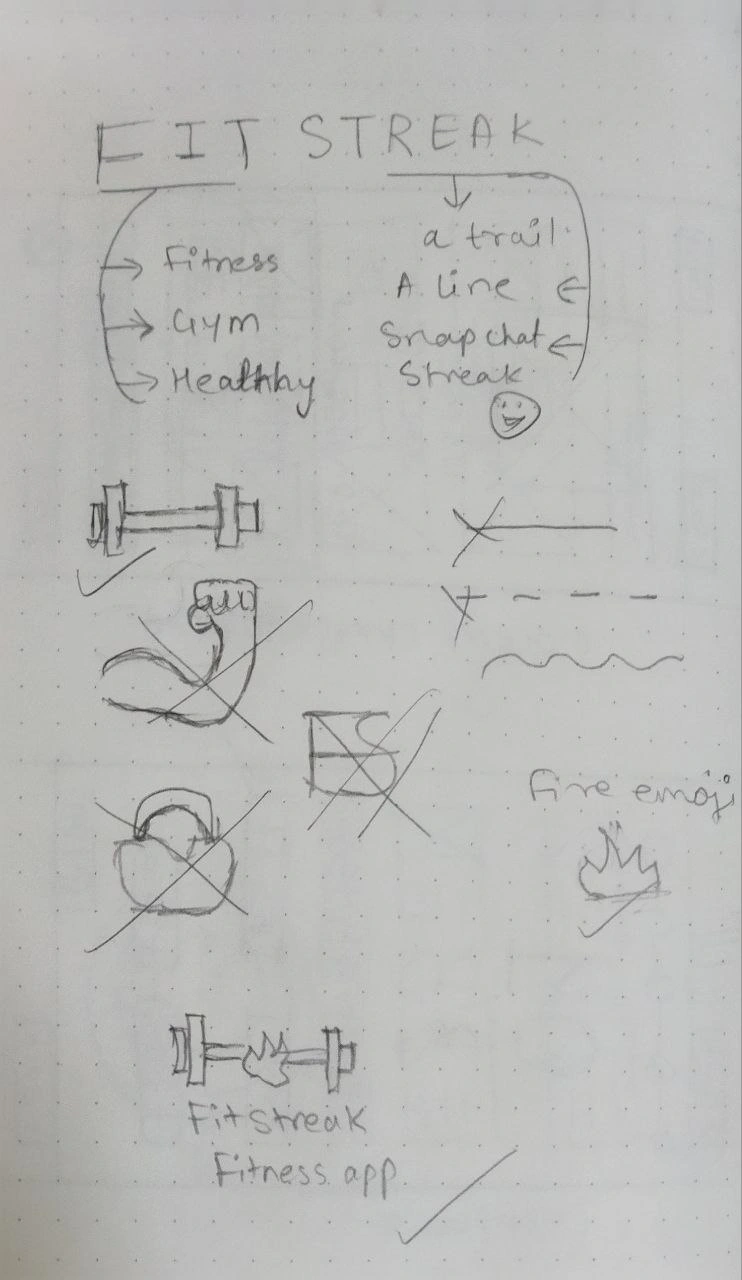 FIT STREAK
Fitness
Gym
Healthy
a trail
A line
Snapchat
Streak
FS
Fire emoji
Fitstreak
Fitness app